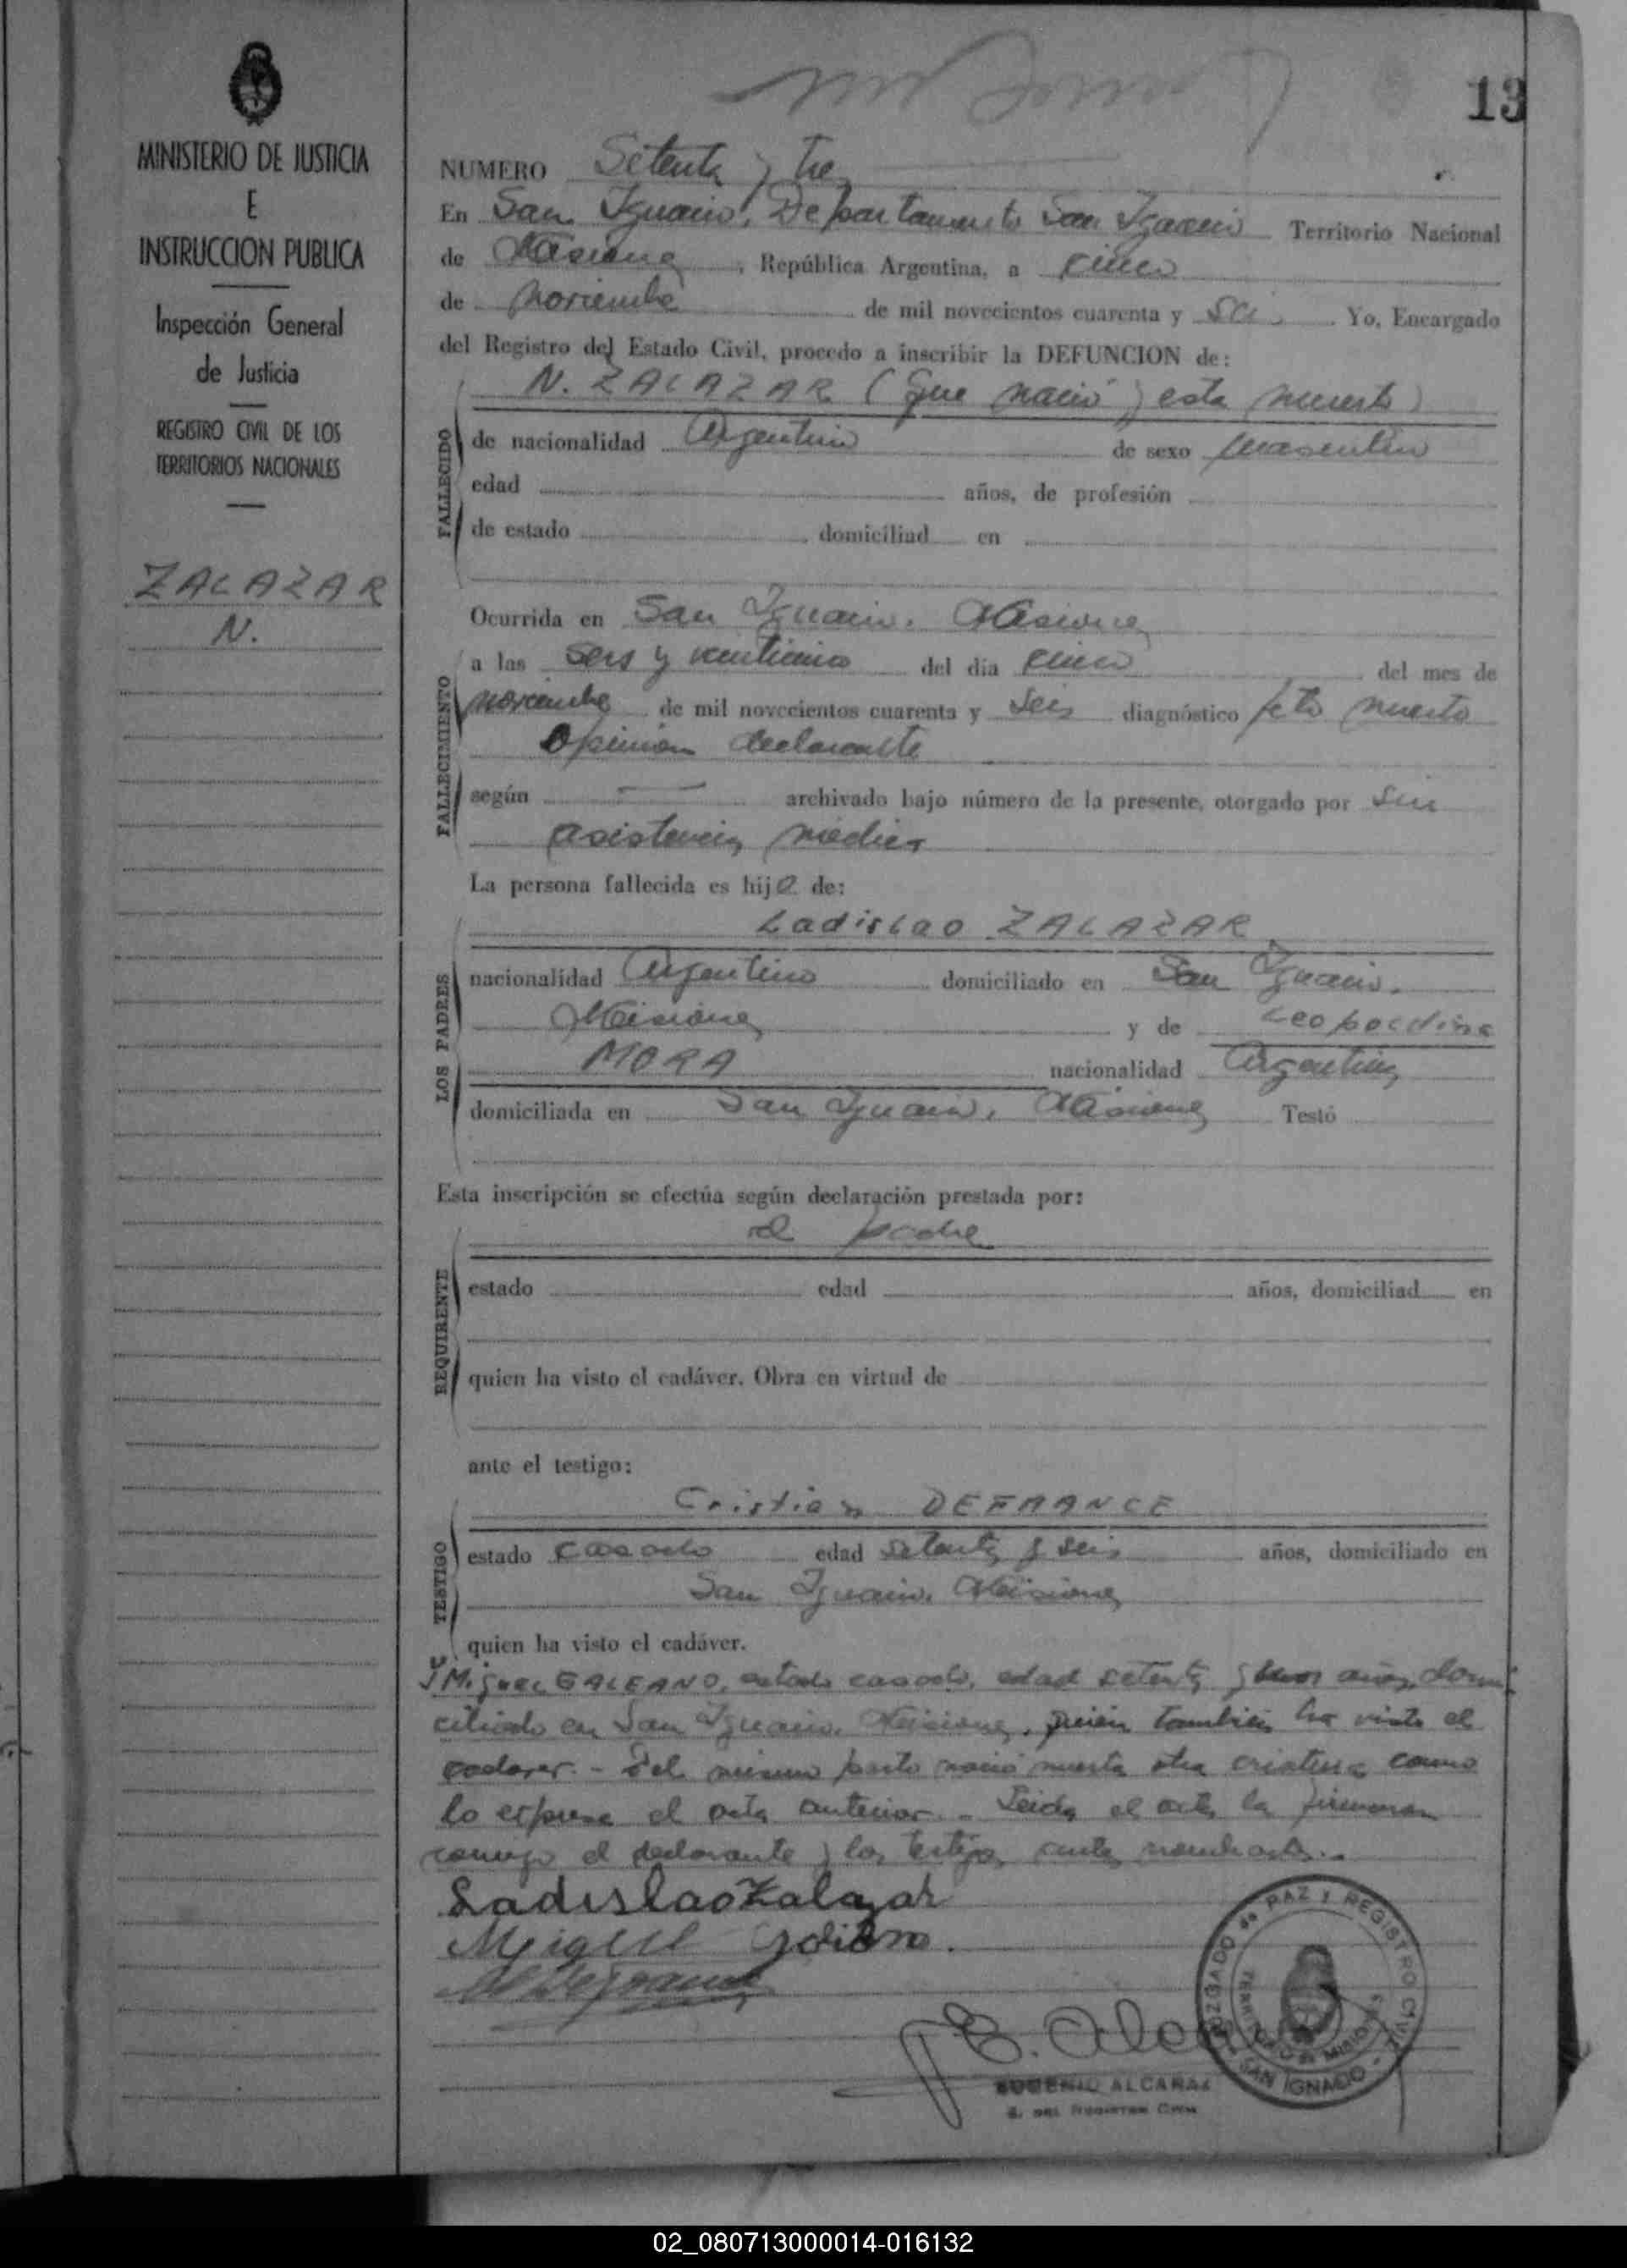 13
MINISTERIO DE JUSTICIA
E
INSTRUCCION PUBLICA
Inspección General
de Justicia
REGISTRO CIVIL DE LOS
TERRITORIOS NACIONALES
ZALAZAR
N.
NUMERO Setenta y tres
En San Ignacio, Departamento San Ignacio Territorio Nacional
de Misiones, República Argentina, a cinco
de Noviembre de mil novecientos cuarenta y seis. Yo, Encargado
del Registro del Estado Civil, procedo a inscribir la DEFUNCION de:
N. ZALAZAR (que nació y esta muerto)
FALLECIDO
de nacionalidad Argentino de sexo masculino
edad años, de profesión
de estado domiciliad en
Ocurrida en San Ignacio. Misiones
FALLECIMIENTO
a las seis y veinticinco del día cinco del mes de
noviembre de mil novecientos cuarenta y seis diagnóstico feto muerto
opinion declarante
según — archivado bajo número de la presente, otorgado por sin
asistencia médica
La persona fallecida es hijo de:
LOS PADRES
Ladislao ZALAZAR
nacionalidad Argentino domiciliado en San Ignacio.
Misiones y de Leopoldina
MORA nacionalidad Argentina
domiciliada en San Ignacio, Misiones Testó
Esta inscripción se efectúa según declaración prestada por:
REQUIRENTE
el padre
estado edad años, domiciliad en
quien ha visto el cadáver. Obra en virtud de
ante el testigo:
TESTIGO
Cristian DEFRANCE
estado casado edad setenta y seis años, domiciliado en
San Ignacio. Misiones
quien ha visto el cadáver.
y Miguel GALEANO, estado casado, edad setenta y años, domi
ciliado en San Ignacio. Misiones, quien también ha visto el
cadaver. - Del mismo parto nació muerta otra criatura como
lo expresa el acta anterior. - Leida el acta la firmaron
conmigo el declarante y los testigos antes nombrados.-
Ladislao Zalazar
Miguel Galiano.
E. Alcaraz
EUGENIO ALCARAZ
E. DEL REGISTRO CIVIL
JUZGADO de PAZ Y REGISTRO CIVIL
TERRITORIO de MISIONES
SAN IGNACIO
02_080713000014-016132